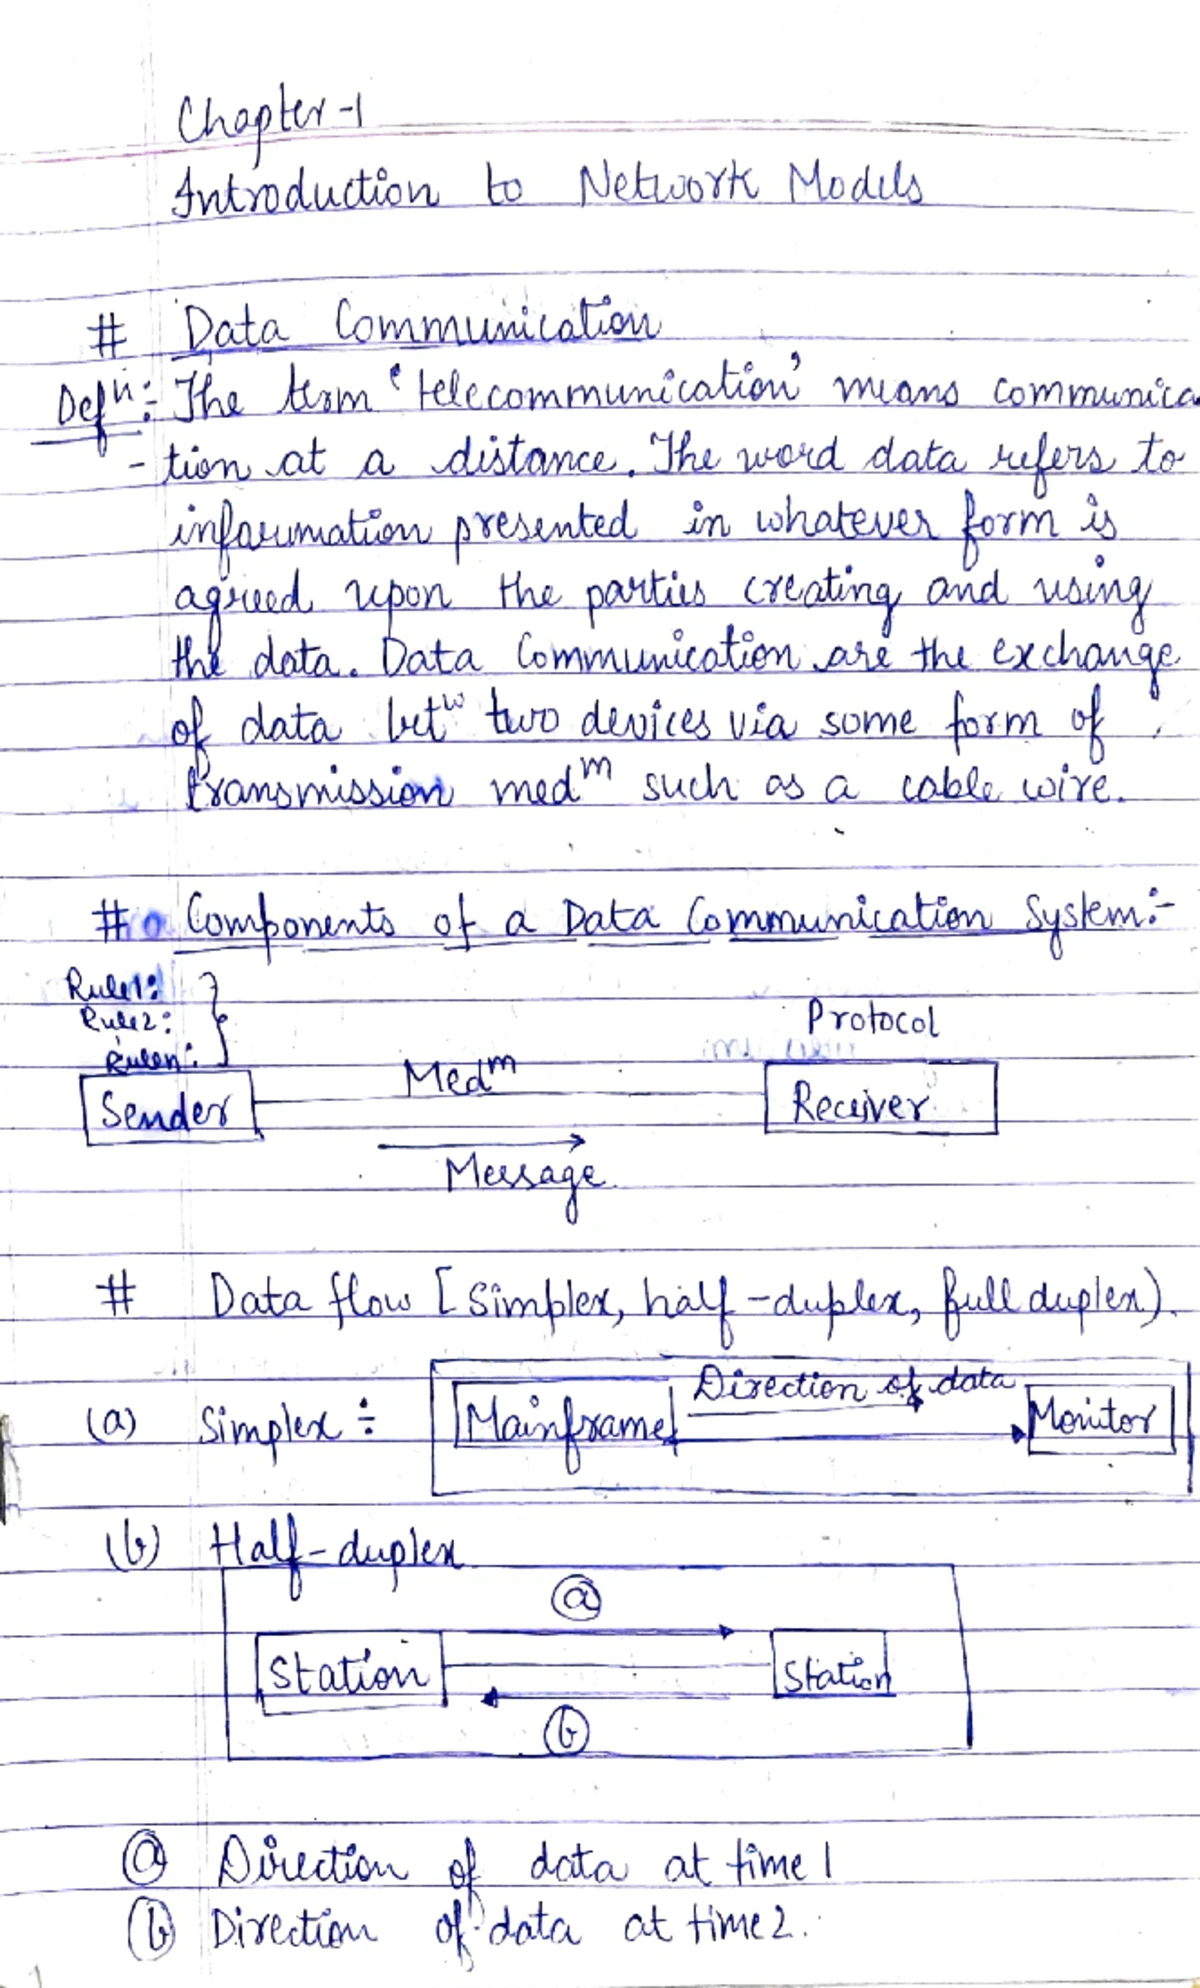 Chapter-1
Introduction to Network Models
# Data Communication
Defⁿ: The term ‘telecommunication’ means communica
-tion at a distance. The word data refers to
information presented in whatever form is
agreed upon the parties creating and using
the data. Data Communication are the exchange
of data betʷ two devices via some form of
transmission medᵐ such as a cable wire.
# Components of a Data Communication System:-
Rule1: }
Rule2:
Rulen:
Protocol
Sender Medᵐ Receiver
Message
# Data flow [Simplex, half-duplex, full duplex).
(a) Simplex ÷ Mainframe Direction of data Monitor
(b) Half-duplex
ⓐ
Station Station
ⓑ
ⓐ Direction of data at time 1
ⓑ Direction of data at time 2.